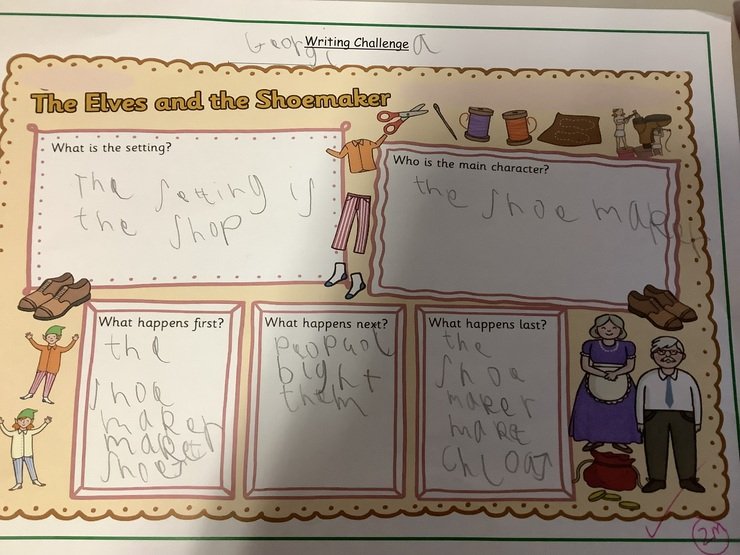 Writing Challenge
Georgia
The Elves and the Shoemaker
What is the setting?
The setting is
the shop
Who is the main character?
the shoe maker
What happens first?
the
shoe
maker
maker
shoes
What happens next?
peopuol
bight
them
What happens last?
the
shoe
maker
make
chloas
2M